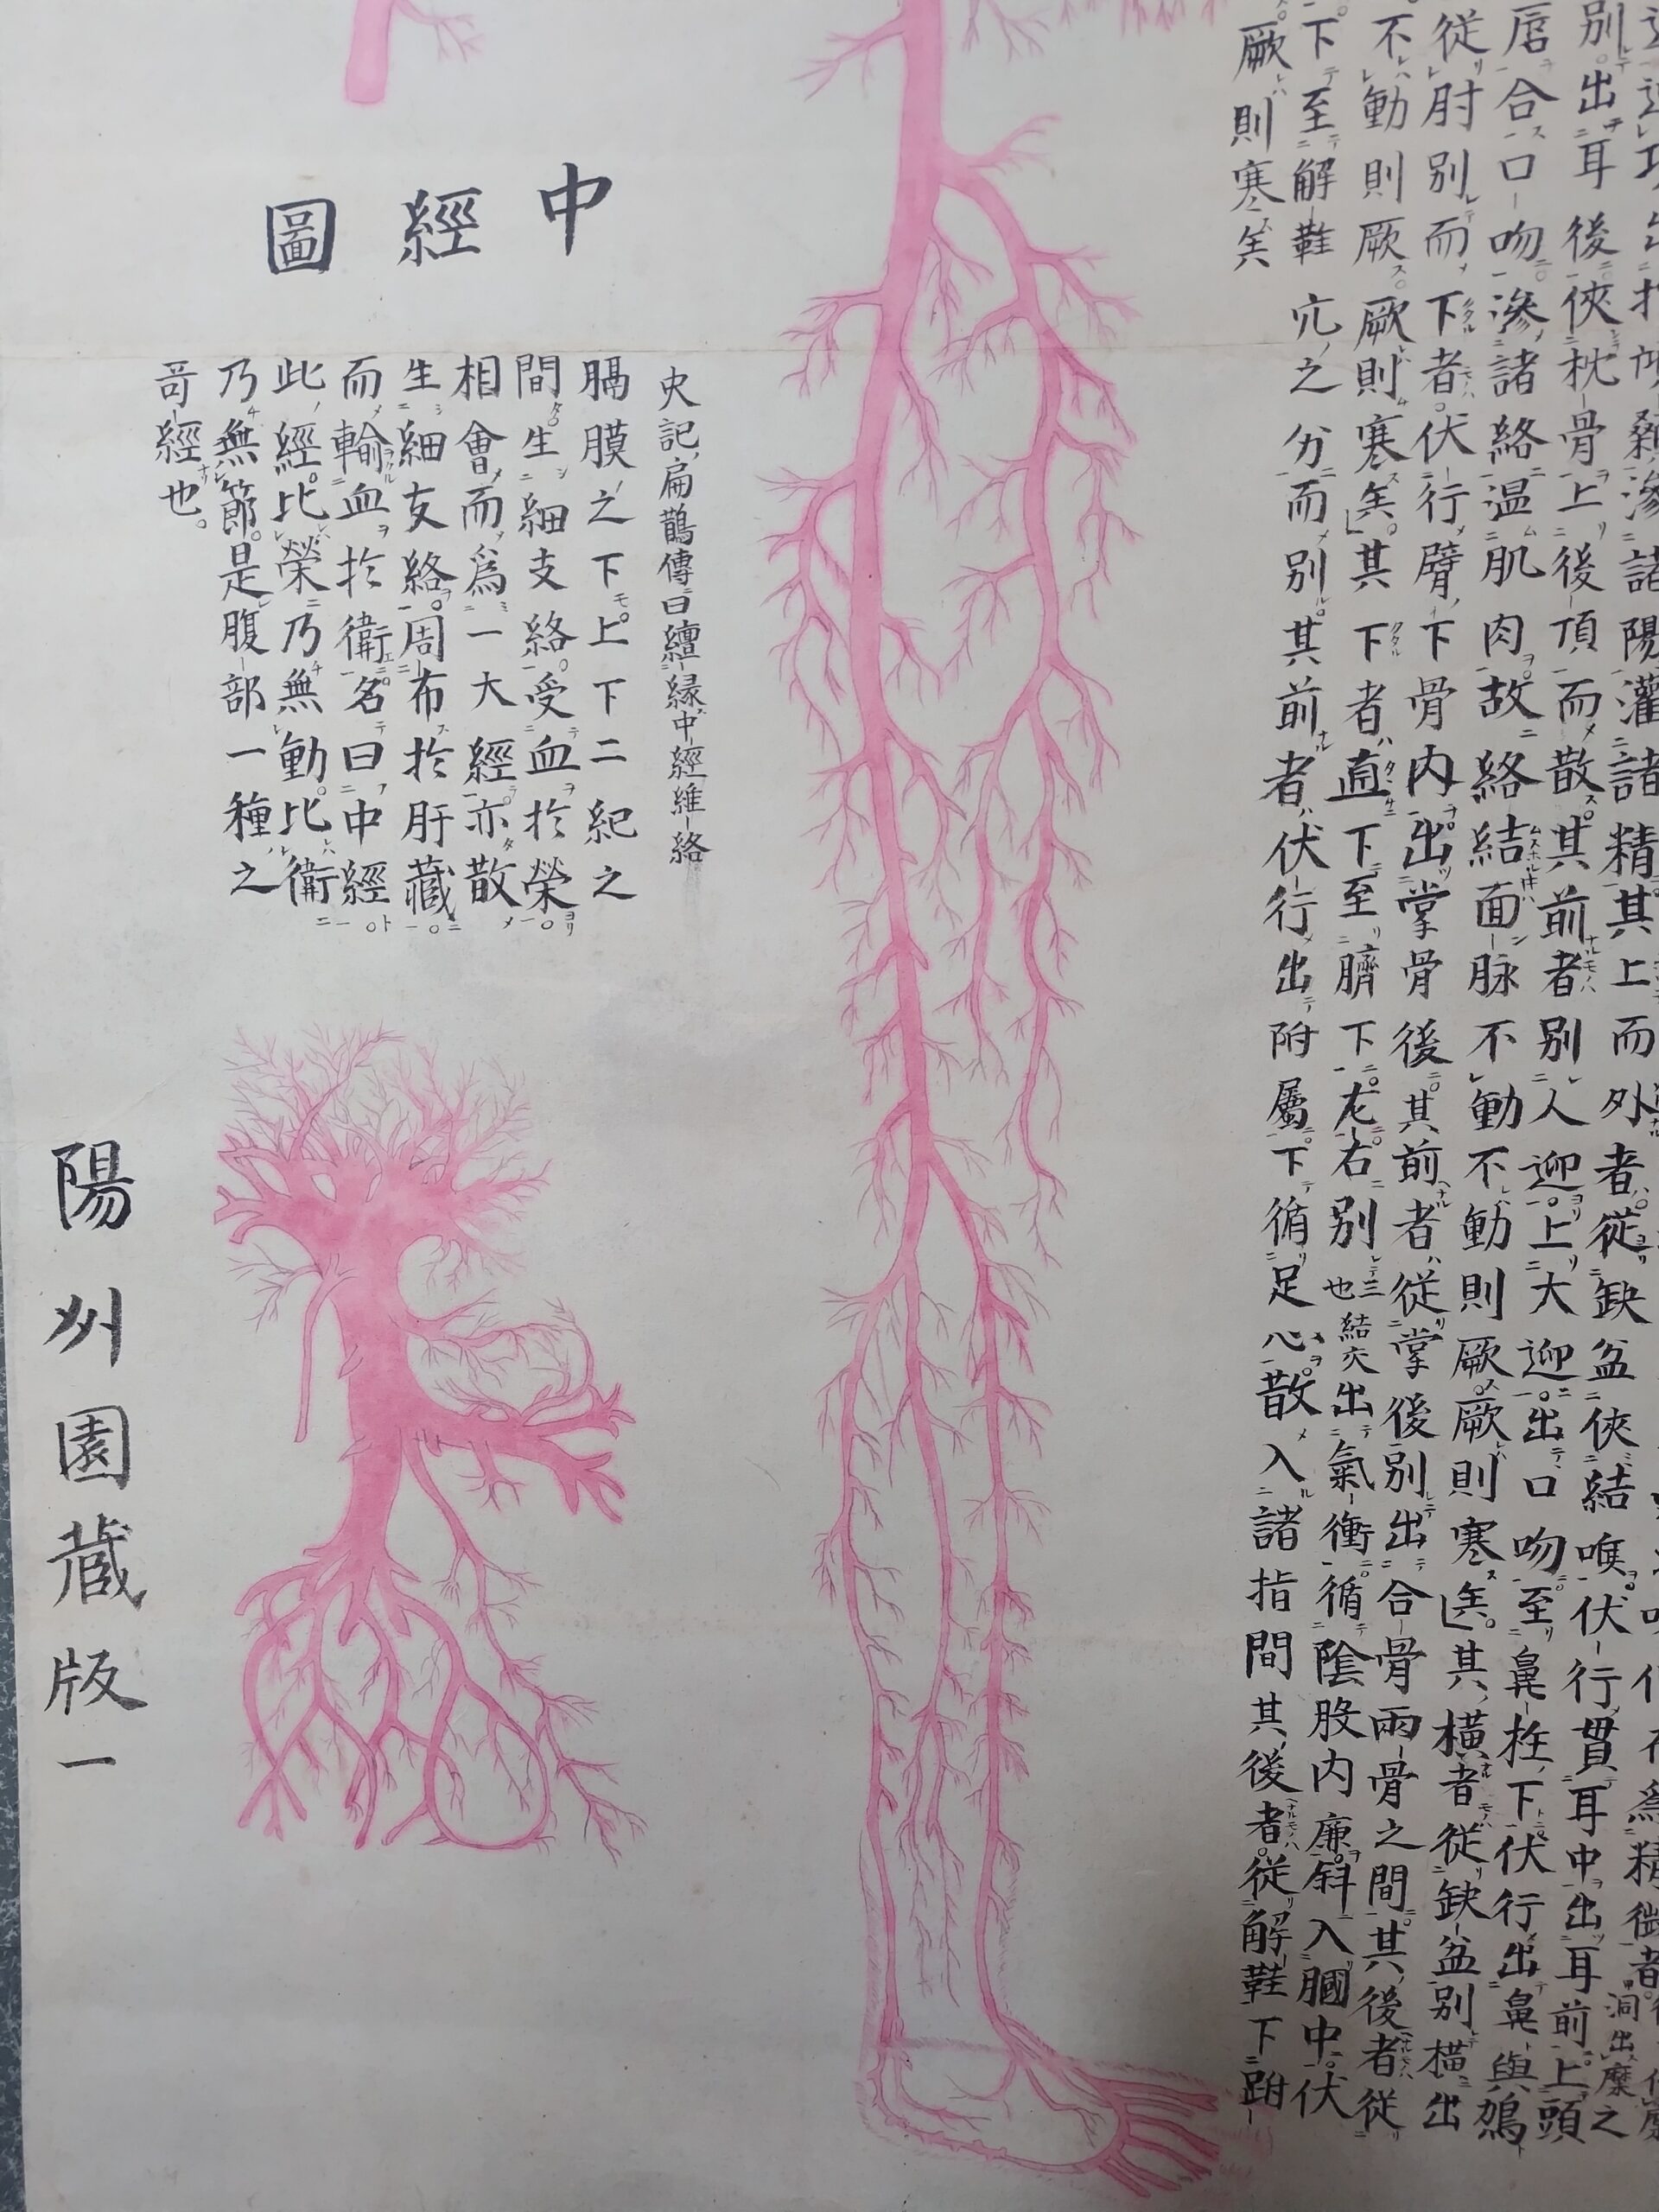 諸陽灌諸精其上而外者從缺盆俠結喉伏行貫耳中出耳前上頭
別出耳後俠枕骨上後頂而散其前者別人迎上大迎出口吻至鼻柱下伏行出鼻與
唇合口吻滲諸絡温肌肉故絡結面脉不動不動則厥厥則寒矣其橫者從缺盆別橫出
從肘別而下者伏行臂下骨內出掌骨後其前者從掌後別出合骨兩骨之間其後者從
不動則厥厥則寒矣其下者直下至臍下左右別出氣衝循陰股內廉斜入膕中伏
下至解鞋之分而別其前者伏行出附屬下循足心散入諸指間其後者從解鞋下跗
厥則寒矣
中經圖
史記扁鵲傳曰纏緣中經維絡
膈膜之下上下二紀之
間生細支絡受血於榮
相會而爲一大經亦散
生細支絡周布於肝藏
而輸血於衞名曰中經
此經比榮乃無動比衞
乃無節是腹部一種之
奇經也。
陽州園蔵版一